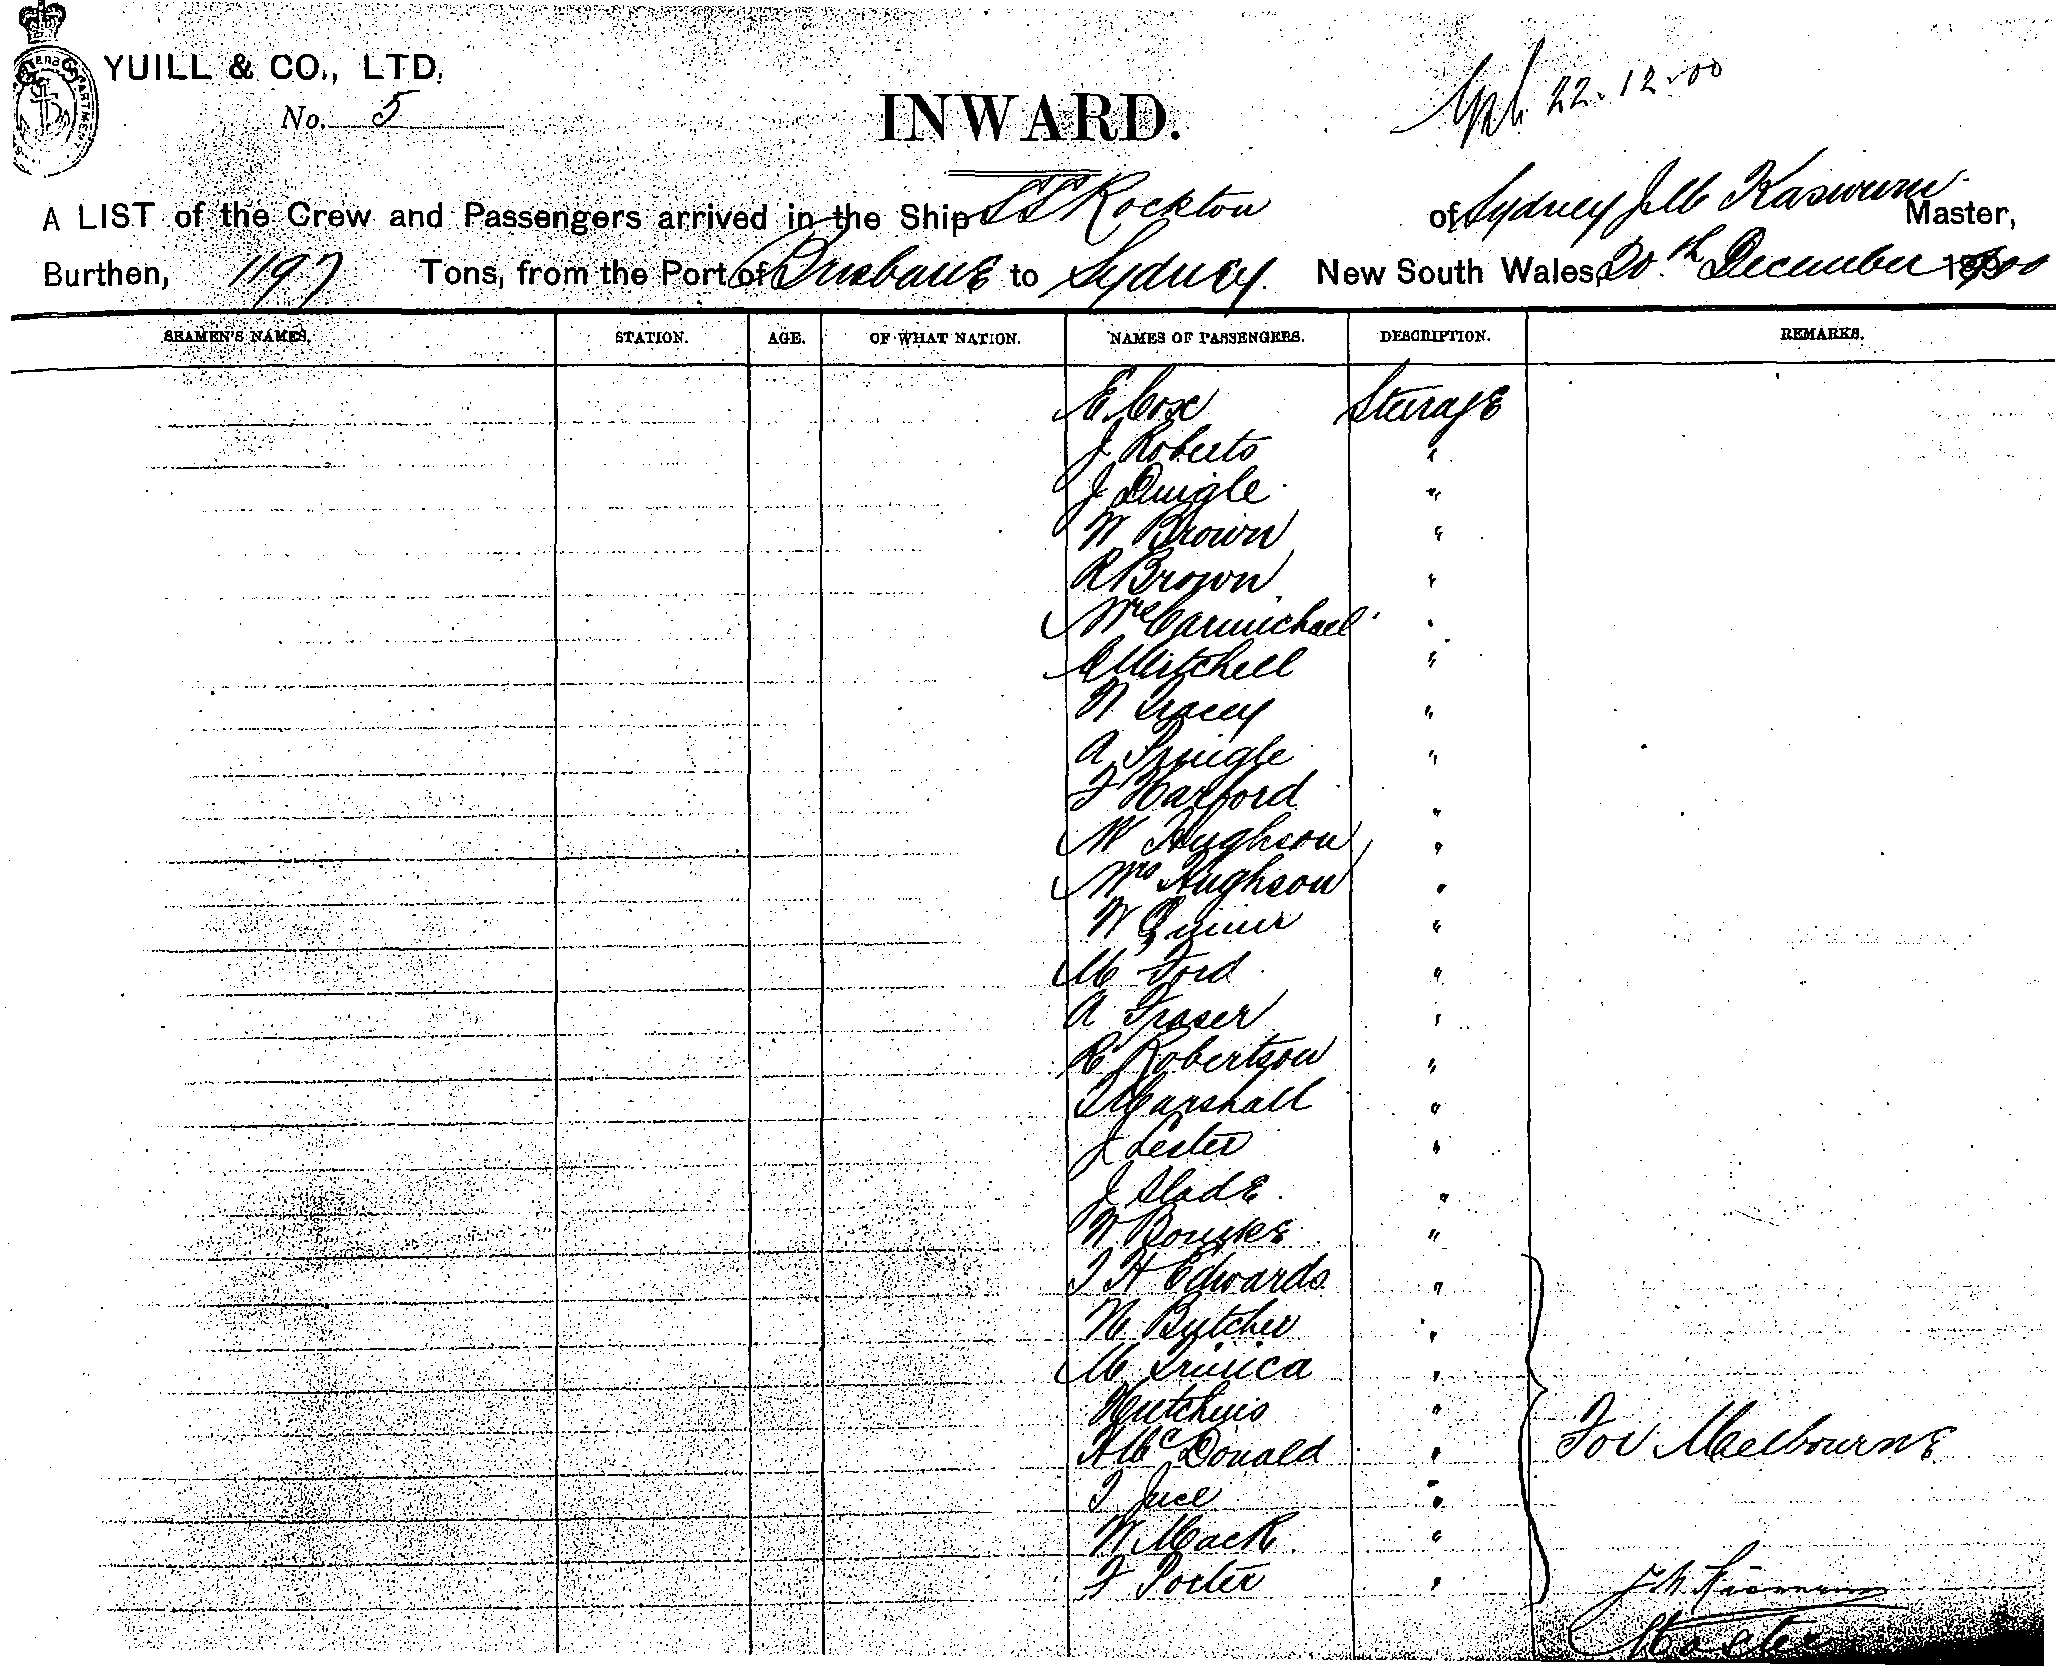 YUILL & CO., LTD.
No. 5
INWARD.
22.12.00
A LIST of the Crew and Passengers arrived in the Ship SS Rockton of Sydney Master,
Burthen, 1197 Tons, from the Port of Brisbane to Sydney. New South Wales, 20th December 1900
SEAMEN'S NAMES. STATION. AGE. OF WHAT NATION. NAMES OF PASSENGERS. DESCRIPTION. REMARKS.
E Cox Steerage
J Roberts "
J Quigle "
W Brown "
R Brown "
Mrs Carmichael "
A Mitchell "
W Tracey "
A Pringle "
F Harford "
W Hughson "
Mrs Hughson "
W "
M Ford "
A Fraser "
R Robertson "
T Marshall "
J Lester "
J Slade "
W Bourke "
T H Edwards "
W Butcher "
M "
Hutchins "
H McDonald " For Melbourne
T "
W Mack "
F Porter "
Master